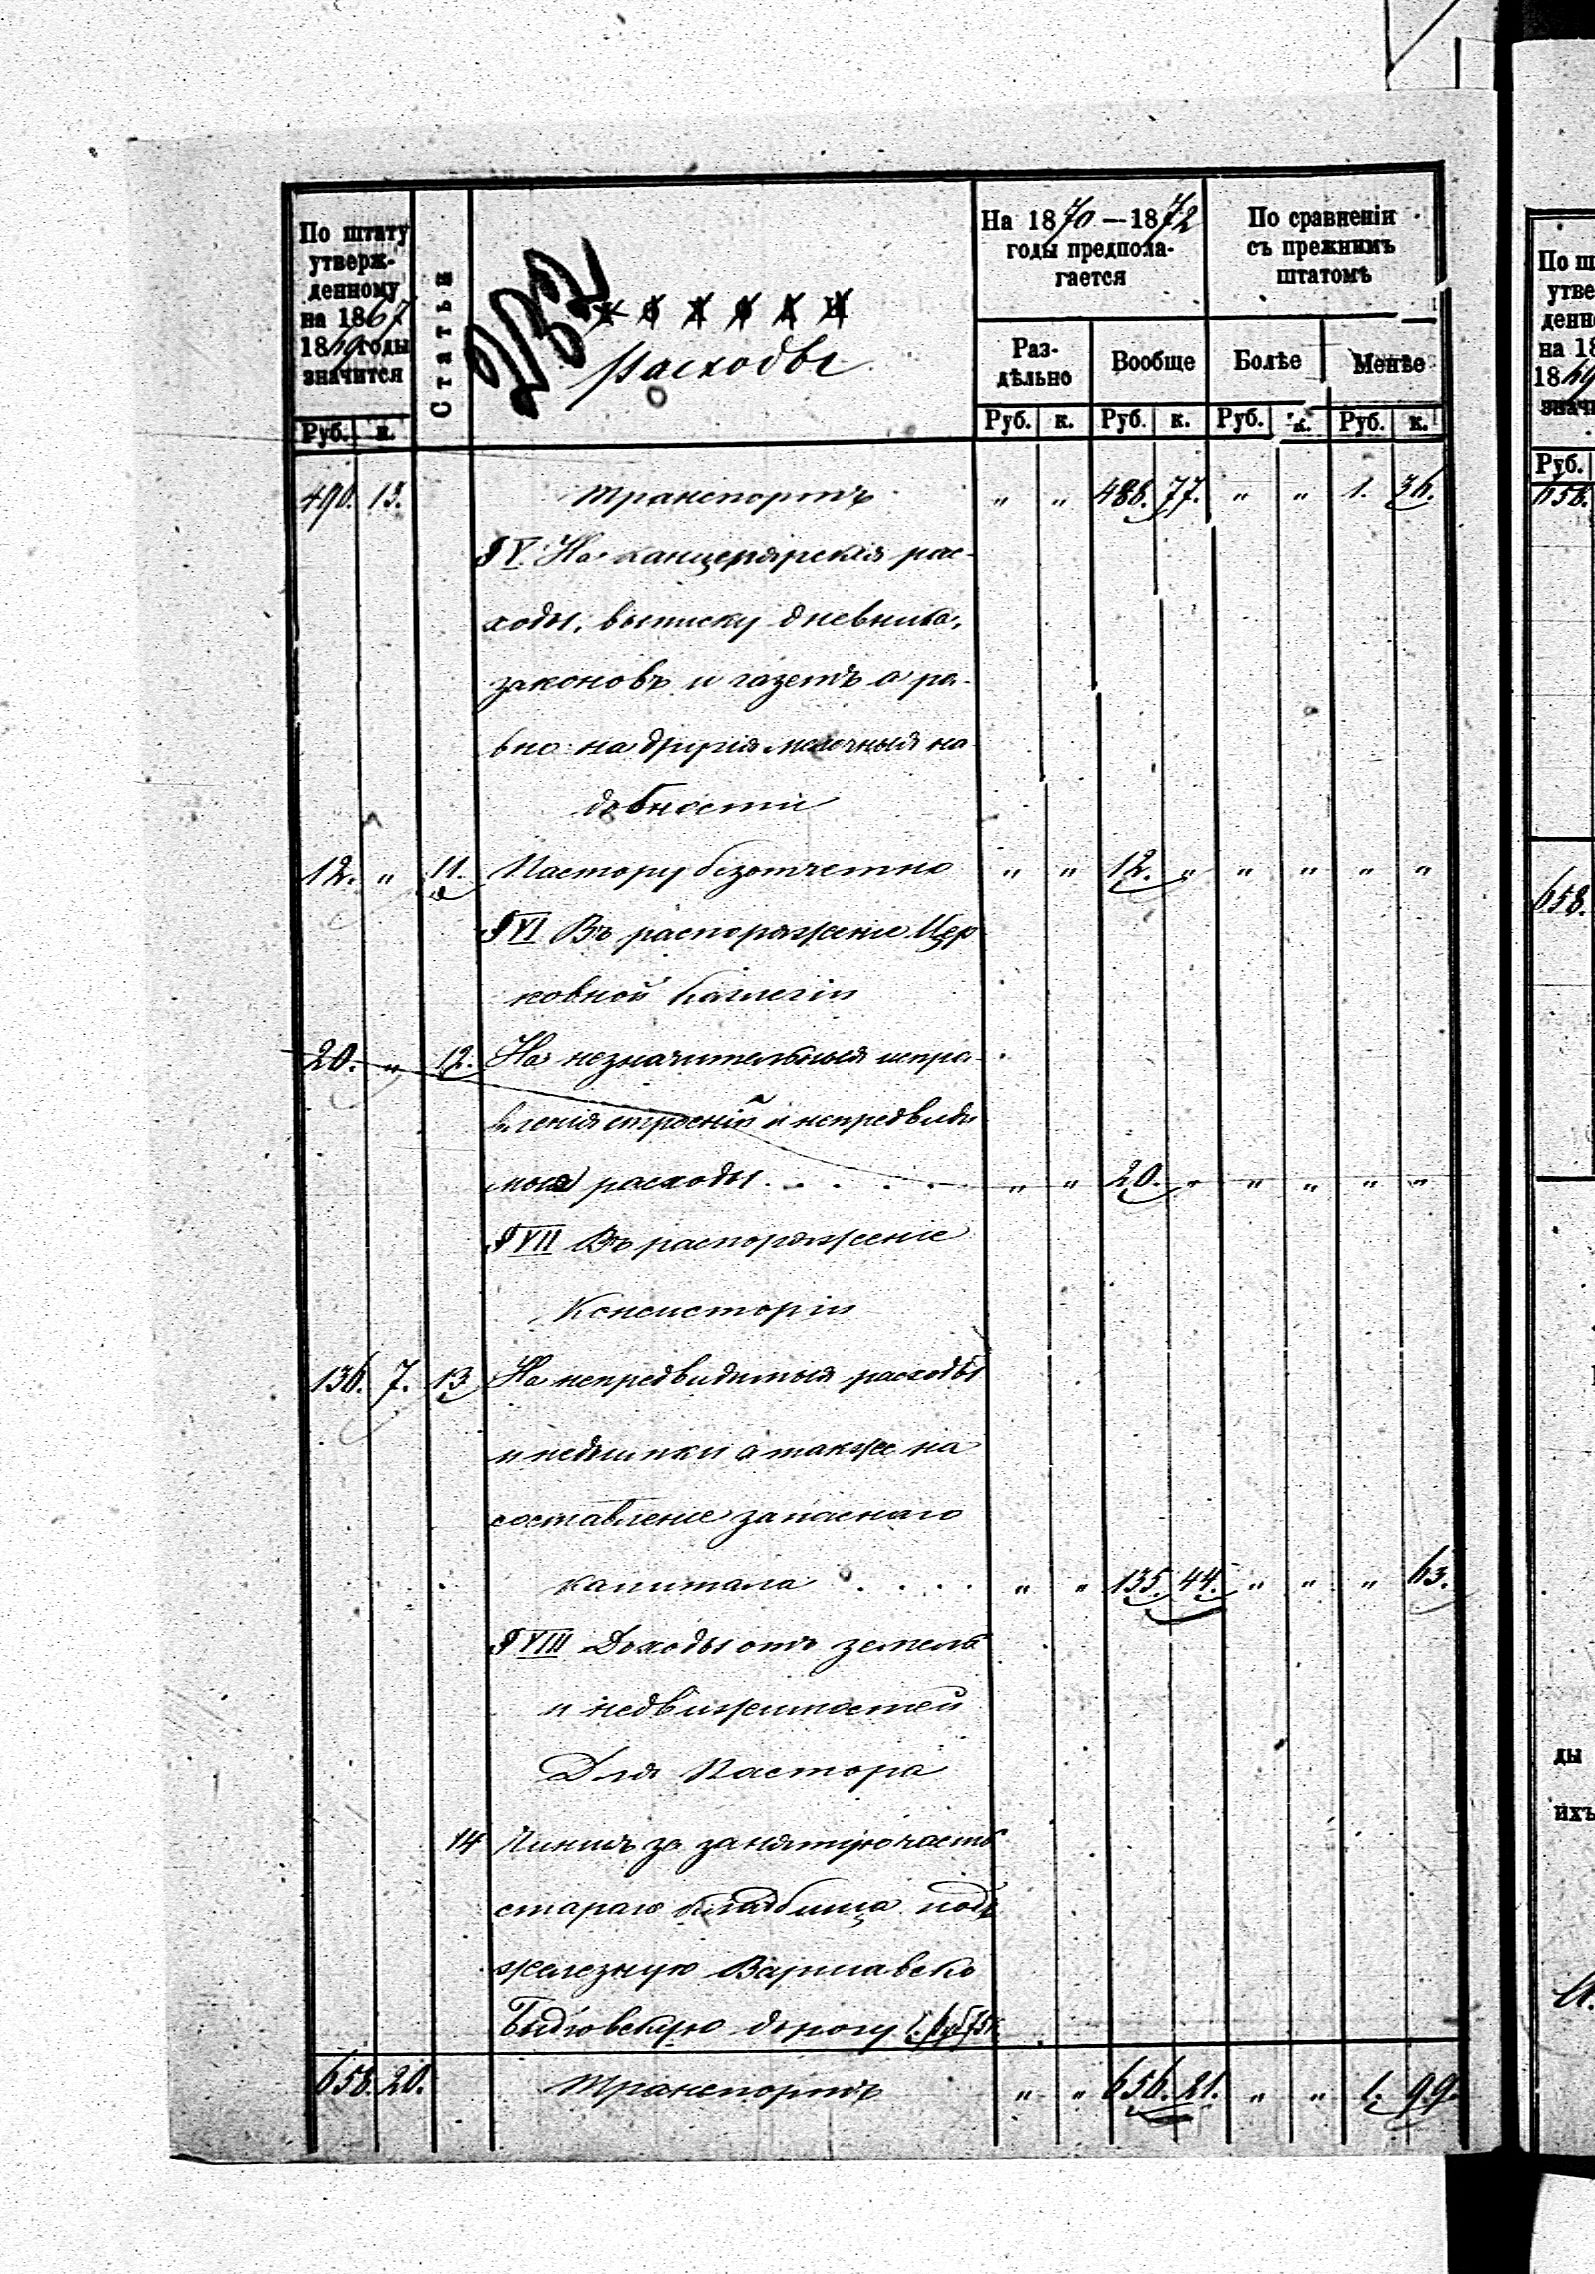 По штату утвержденному на 1867 1869 годы значится
Статьи
Доходы
Расходы
На 1870—1872 годы предполагается
По сравненію съ прежнимъ штатомъ
Раздѣльно Вообще Болѣе Менѣе
Руб. к. Руб. к. Руб. к. Руб. к. Руб. к.
490. 13. Транспортъ " " 488. 77. " " 1. 36.
§ V. На канцелярскія рас-
ходы, выписку дневника,
законовъ и газетъ а ра-
вно на другія мелочныя на
добности
12. " 11. Пастору безотчетно " " 12. " " " " "
§ VI Въ распоряженіе Цер
ковной Коллегіи
20. " 12. На незначительныя испра-
вленія строеній и непредвиди
мыя расходы . . . . . " " 20. " " " " "
§ VII Въ распоряженіе
Консисторіи
136. 7. 13 На непредвидимыя расходы
и недоимки а также на
составленіе запаснаго
капитала . . . . " " 135. 44. " " " 63.
§ VIII Доходы отъ земель
и недвижимостей
Для Пастора
14 Чиншъ за занятую часть
стараго кладбища подъ
железную Варшавско
Быдговскую дорогу 1. руб 75 к.
658. 20. Транспортъ " " 656. 21. " " 1. 99.
По ш
утве
денн
на 18
1869
значи
Руб.
658.
658.
ды
ихъ